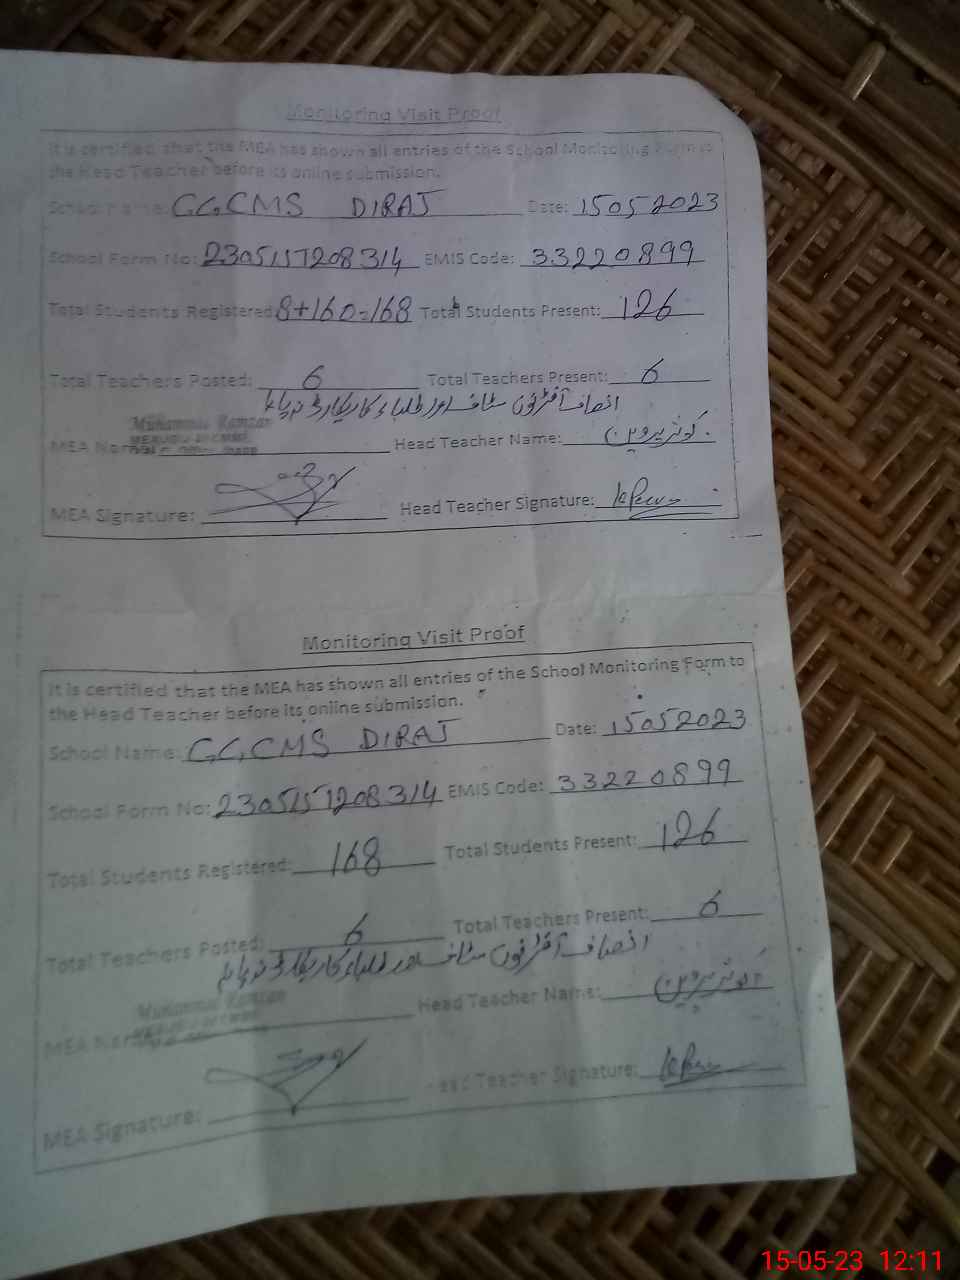 Monitoring Visit Proof
It is certified that the MEA has shown all entries of the School Monitoring Form to
the Head Teacher before its online submission.
School Name: GGCMS DIRAJ Date: 15052023
School Form No: 2305151208314 EMIS Code: 33220899
Total Students Registered 8+160=168 Total Students Present: 126
Total Teachers Posted: 6 Total Teachers Present: 6
انصاف آفٹرنون سٹاف اور طلباء کا ریکارڈ نہ پایا
Muhammad Ramzan
MEA Name Head Teacher Name: کوثر پروین
MEA Signature: Head Teacher Signature:
Monitoring Visit Proof
It is certified that the MEA has shown all entries of the School Monitoring Form to
the Head Teacher before its online submission.
School Name: GGCMS DIRAJ Date: 15052023
School Form No: 2305151208314 EMIS Code: 33220899
Total Students Registered: 168 Total Students Present: 126
Total Teachers Posted: 6 Total Teachers Present: 6
انصاف آفٹرنون سٹاف اور طلباء کا ریکارڈ نہ پایا
Muhammad Ramzan
MEA Name Head Teacher Name: کوثر پروین
MEA Signature: Head Teacher Signature:
15-05-23 12:11